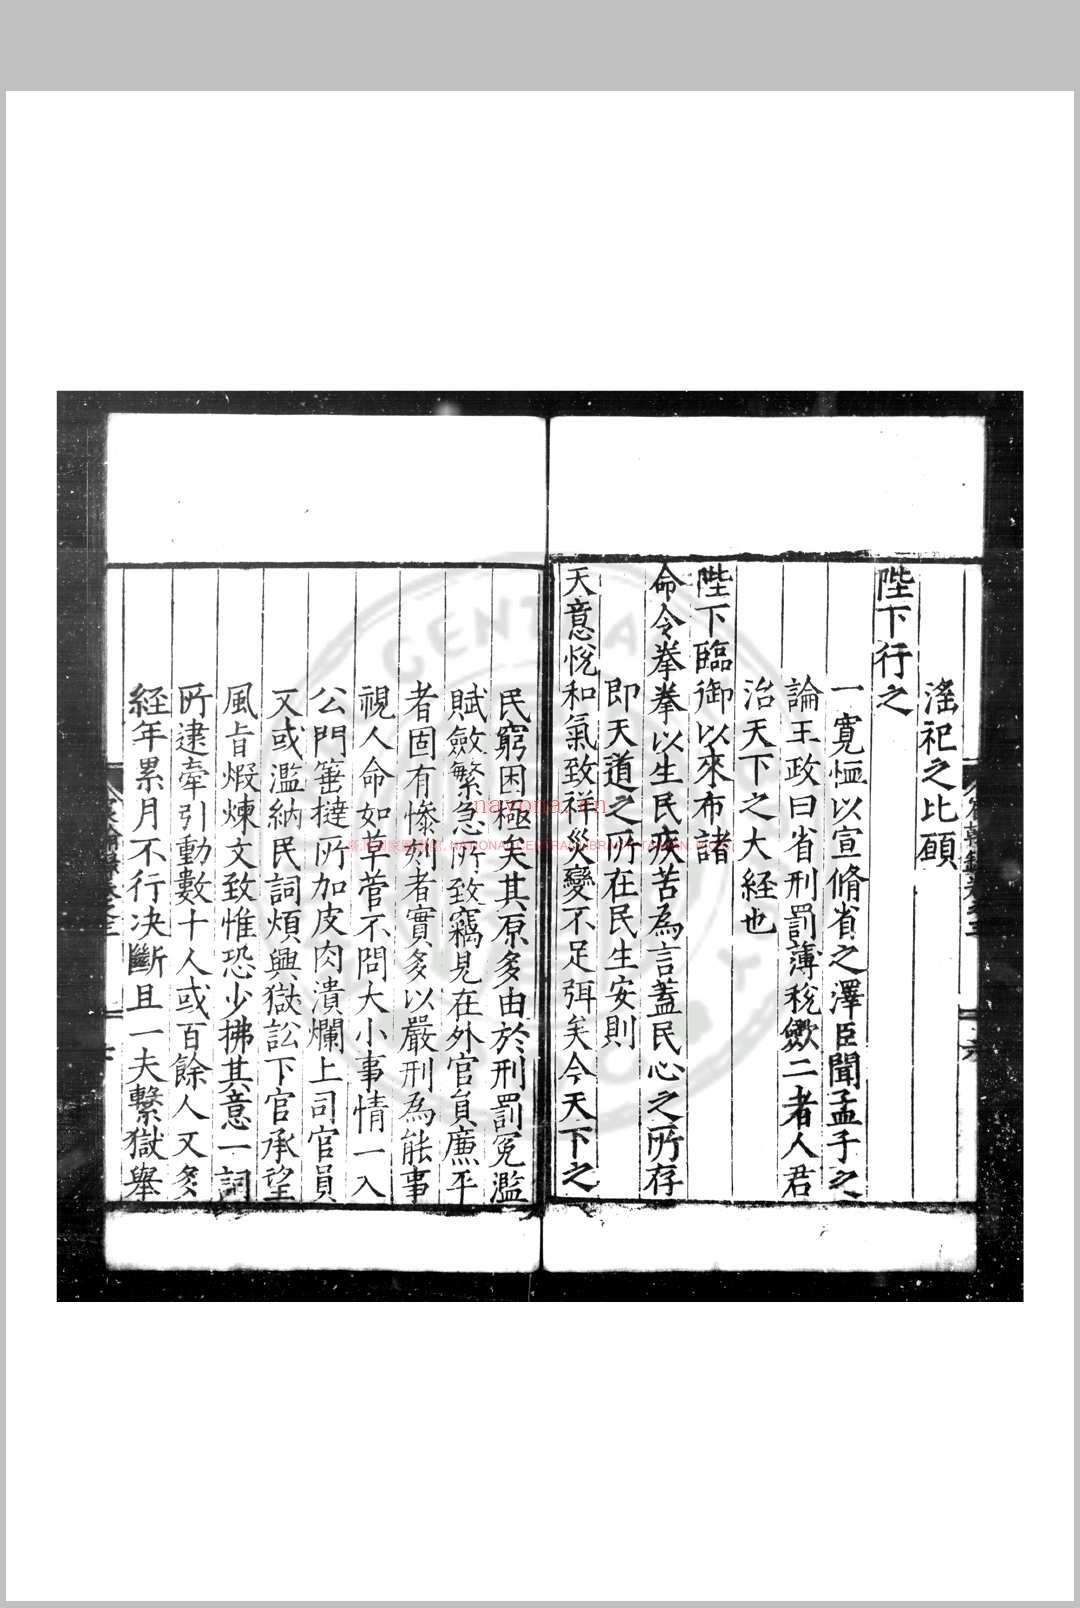 滛祀之比願
陛下行之
一寛恤以宣脩省之澤臣聞孟子之
論王政曰省刑罰薄稅斂二者人君
治天下之大経也
陛下臨御以來布諸
命令拳拳以生民疾苦為言蓋民心之所存
即天道之所在民生安則
天意悅和氣致祥災變不足弭矣今天下之
民窮困極矣其原多由於刑罰冤濫
賦斂繁急所致竊見在外官員廉平
者固有慘刻者實多以嚴刑為能事
視人命如草菅不問大小事情一入
公門箠撻所加皮肉潰爛上司官員
又或濫納民詞煩興獄訟下官承望
風旨煆煉文致惟恐少拂其意一詞
所逮牽引動數十人或百餘人又多
経年累月不行决斷且一夫繫獄舉
nayona.cn